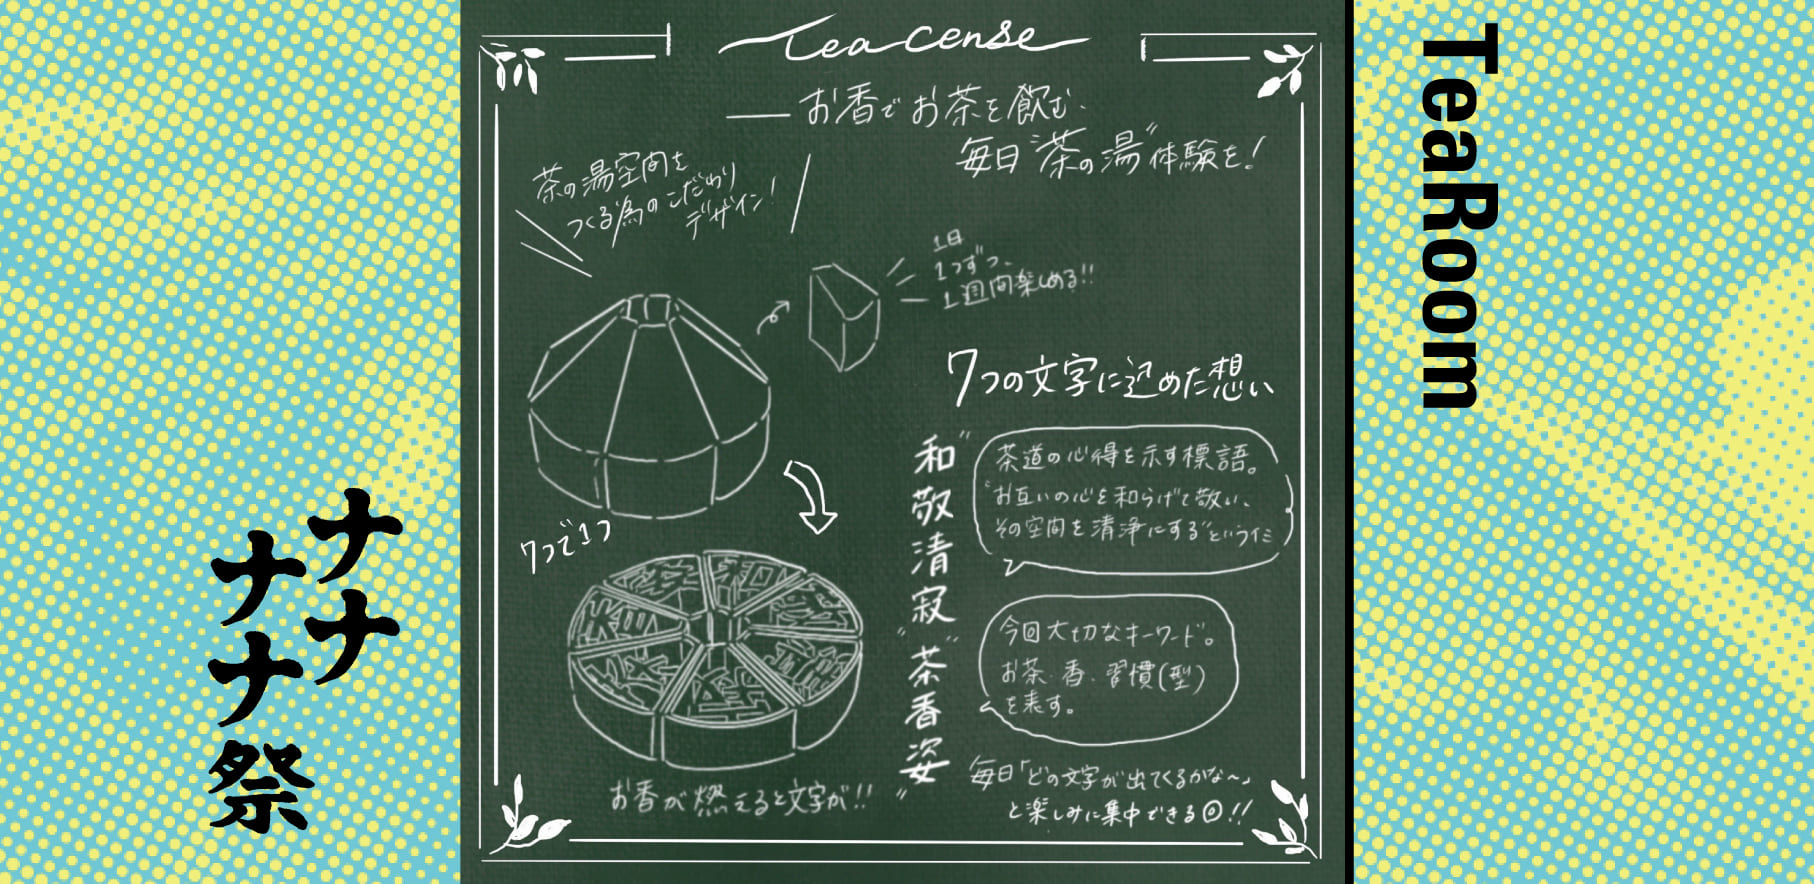 Tea cense
お香でお茶を飲む、
毎日“茶の湯”体験を!
茶の湯空間を
つくる為のこだわり
デザイン!
1日
1つずつ、
1週間楽しめる!!
7つで1つ
お香が燃えると文字が!!
7つの文字に込めた想い
“和敬清寂”
茶道の心得を示す標語。
“お互いの心を和らげて敬い、
その空間を清浄にする”というイミ
“茶香姿”
今回大切なキーワード。
お茶、香、習慣(型)
を表す。
毎日「どの文字が出てくるかな〜」
と楽しみに集中できる◎!!
ナナ
ナナ祭
TeaRoom